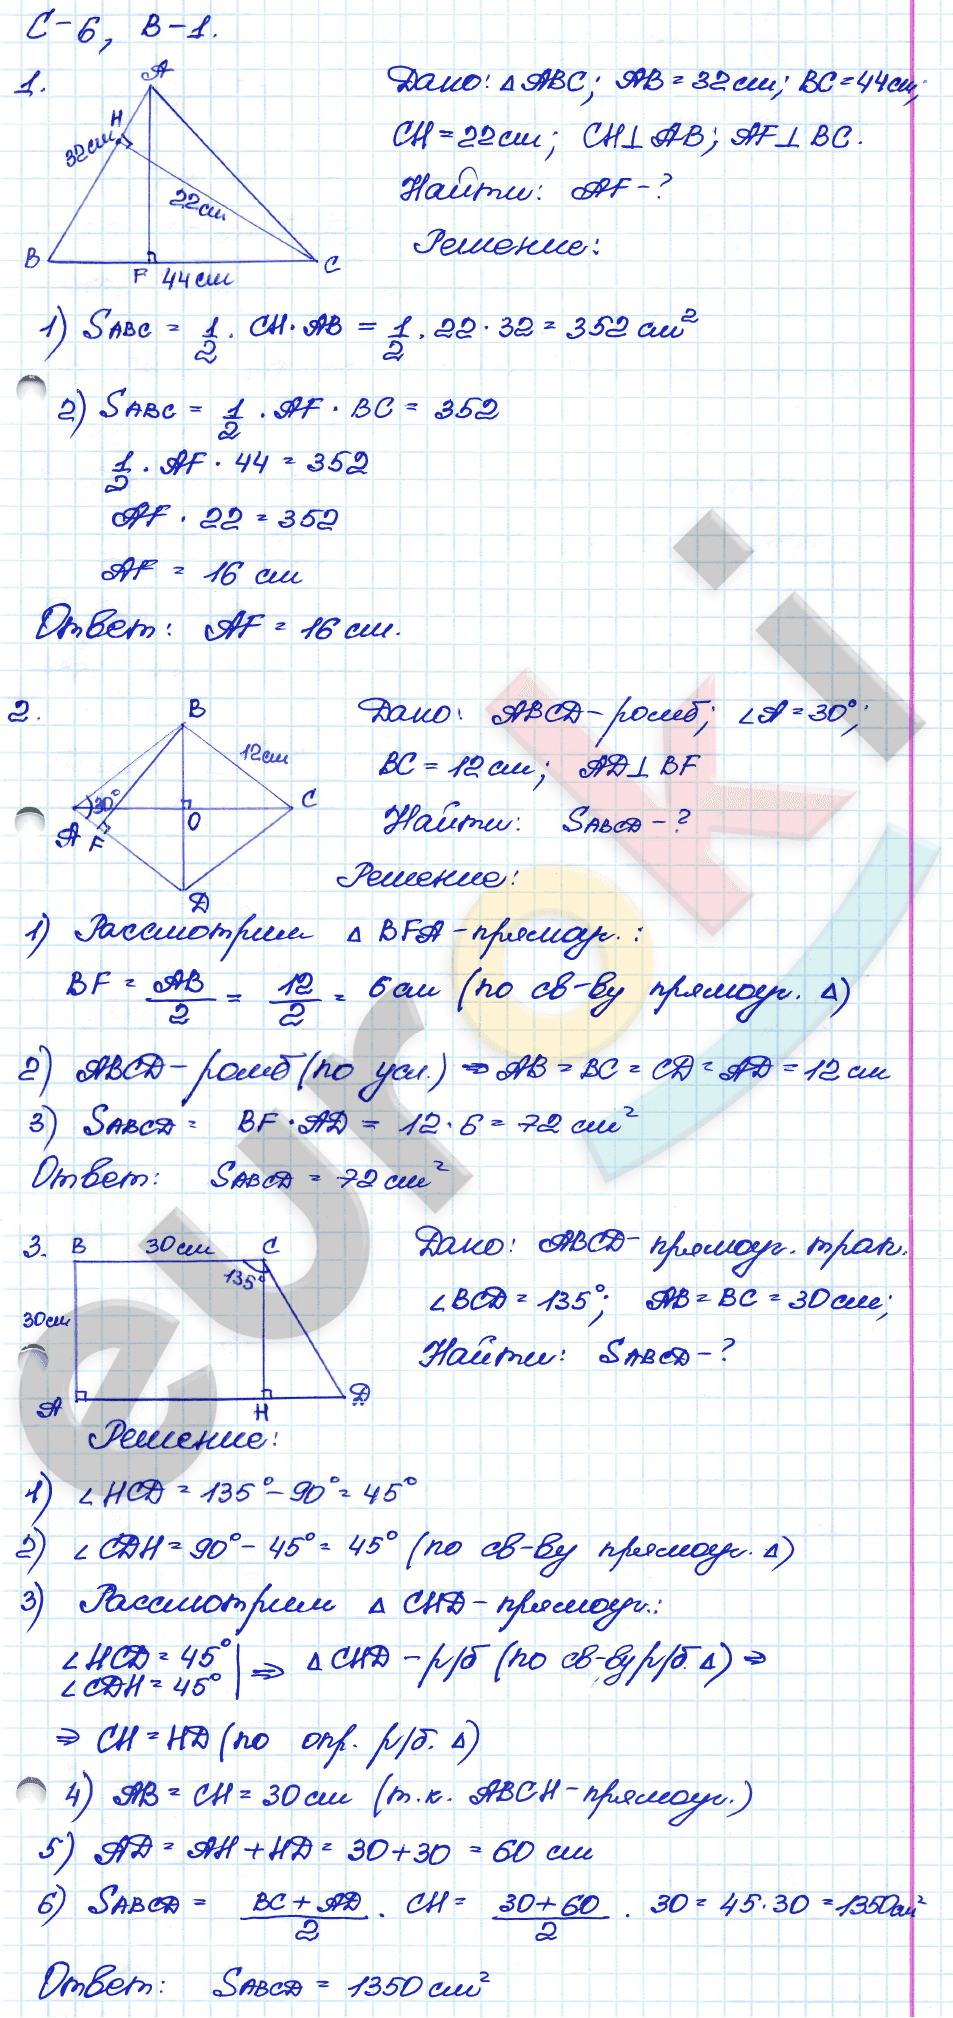 С-6, В-1.
1.
A
H
32см
22см
B
F
44см
C
Дано: △ABC; AB = 32см; BC = 44см;
CH = 22см; CH⊥AB; AF⊥BC.
Найти: AF - ?
Решение:
1) SABC = 1/2 · CH · AB = 1/2 · 22 · 32 = 352 см²
2) SABC = 1/2 · AF · BC = 352
1/2 · AF · 44 = 352
AF · 22 = 352
AF = 16 см
Ответ: AF = 16 см.
2.
B
12см
30°
C
A
F
O
D
Дано: ABCD - ромб; ∠A = 30°;
BC = 12см; AD⊥BF
Найти: SABCD - ?
Решение:
1) Рассмотрим △BFA - прямоуг.:
BF = AB/2 = 12/2 = 6см (по св-ву прямоуг. △)
2) ABCD - ромб (по усл.) ⇒ AB = BC = CD = AD = 12см
3) SABCD = BF · AD = 12 · 6 = 72 см²
Ответ: SABCD = 72 см²
3.
B
30см
C
135°
30см
A
H
D
Дано: ABCD - прямоуг. трап.
∠BCD = 135°; AB = BC = 30см;
Найти: SABCD - ?
Решение:
1) ∠HCD = 135° - 90° = 45°
2) ∠CDH = 90° - 45° = 45° (по св-ву прямоуг. △)
3) Рассмотрим △CHD - прямоуг.:
∠HCD = 45°
∠CDH = 45° | ⇒ △CHD - р/б (по св-ву р/б. △) ⇒
⇒ CH = HD (по опр. р/б. △)
4) AB = CH = 30см (т.к. ABCH - прямоуг.)
5) AD = AH + HD = 30 + 30 = 60 см
6) SABCD = (BC + AD)/2 · CH = (30 + 60)/2 · 30 = 45 · 30 = 1350см²
Ответ: SABCD = 1350 см²
euroki